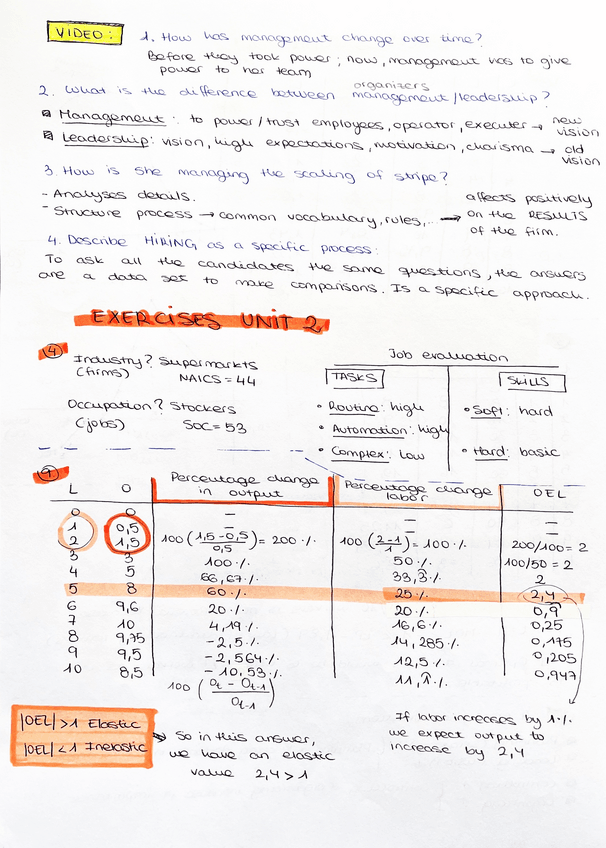 VIDEO:
1. How has management change over time?
Before they took power; now, management has to give
power to her team
organizers
2. What is the difference between management/leadership?
Management: to power/trust employees, operator, executer → new vision
Leadership: vision, high expectations, motivation, charisma → old vision
3. How is she managing the scaling of stripe?
- Analyses details.
- Structure process → common vocabulary, rules,.. → affects positively on the RESULTS of the firm.
4. Describe HIRING as a specific process:
To ask all the candidates the same questions, the answers
are a data set to make comparisons. Is a specific approach.
EXERCISES UNIT 2
4
Industry? Supermarkts
(firms) NAICS = 44
Occupation? Stockers
(jobs) SOC = 53
Job evaluation
TASKS SKILLS
• Routine: high • Soft: hard
• Automation: high
• Complex: low • Hard: basic
9
L O Percentage change in output Percentage change labor OEL
0 0 – – –
1 0,5 – – –
2 1,5 100 (1,5-0,5/0,5) = 200 % 100 (2-1/1) = 100 % 200/100 = 2
3 3 100 % 50 % 100/50 = 2
4 5 66,67 % 33,3 % 2
5 8 60 % 25 % 2,4
6 9,6 20 % 20 % 0,9
7 10 4,19 % 16,6 % 0,25
8 9,75 -2,5 % 14,285 % 0,175
9 9,5 -2,564 % 12,5 % 0,205
10 8,5 -10,53 % 11,1 % 0,947
100 (Ot - Ot-1 / Ot-1)
|OEL| > 1 Elastic
|OEL| < 1 Inelastic
→ So in this answer,
we have an elastic
value 2,4 > 1
If labor increases by 1 %
we expect output to
increase by 2,4